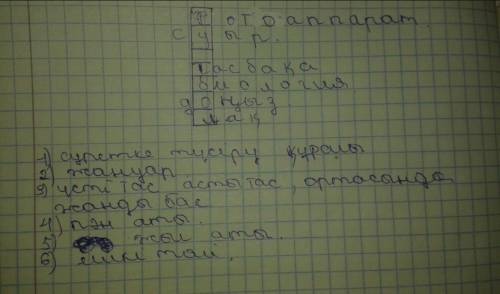 Фотоаппарат.
суыр.
тасбақа
биология
доңыз
лақ
1) суретке түсіру құралы
2) жануар.
3) үсті тас асты тас, ортасында
жанды бас
4) пән аты.
5) жыл аты.
6)